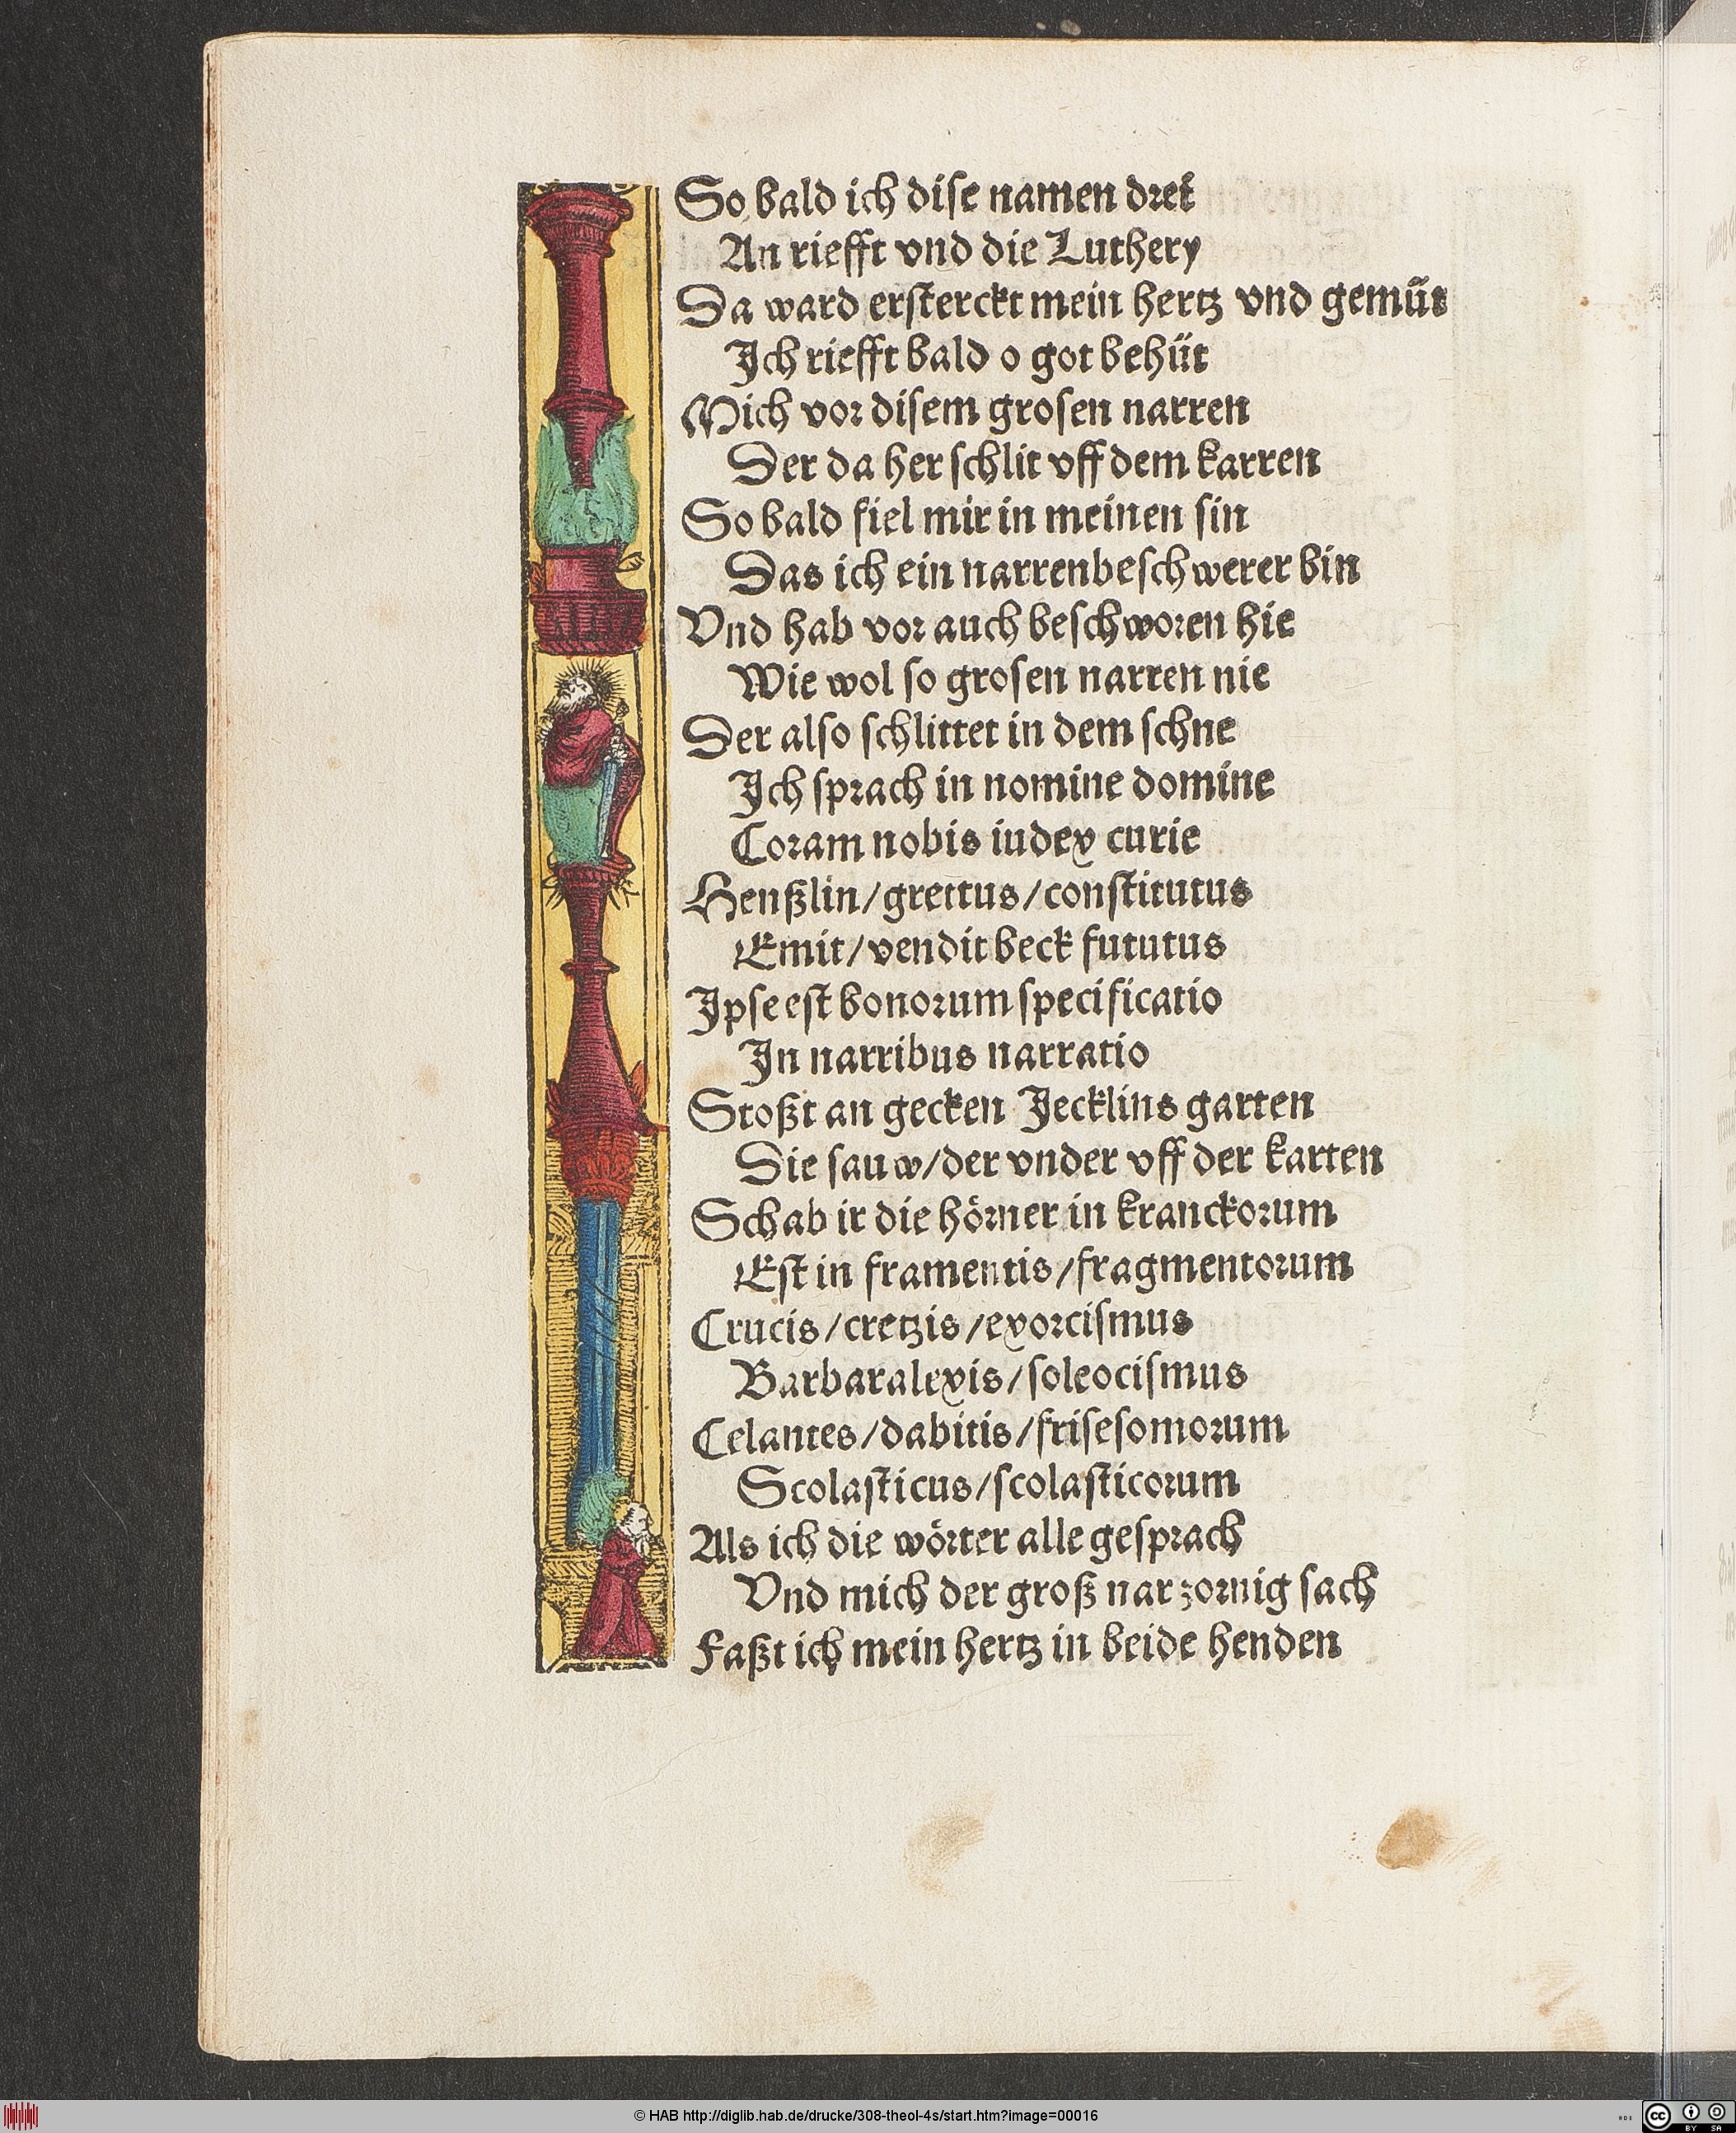 So bald ich dise namen drei
An riefft vnd die Luthery
Da ward ersterckt mein hertz vnd gemüt
Ich riefft bald o got behüt
Mich vor disem grosen narren
Der da her schlit vff dem karren
So bald fiel mir in meinen sin
Das ich ein narrenbeschwerer bin
Vnd hab vor auch beschworen hie
Wie wol so grosen narren nie
Der also schlittet in dem schne
Ich sprach in nomine domine
Coram nobis iudex curie
Henßlin/grettus/constitutus
Emit/vendit beck fututus
Ipse est bonorum specificatio
In narribus narratio
Stoßt an gecken Jecklins garten
Die sauw/der vnder vff der karten
Schab ir die hörner in kranckorum
Est in framentis/fragmentorum
Crucis/cretzis/exorcismus
Barbaralexis/soleocismus
Celantes/dabitis/frisesomorum
Scolasticus/scolasticorum
Als ich die wörter alle gesprach
Vnd mich der groß nar zornig sach
Faßt ich mein hertz in beide henden
© HAB http://diglib.hab.de/drucke/308-theol-4s/start.htm?image=00016
cc BY SA